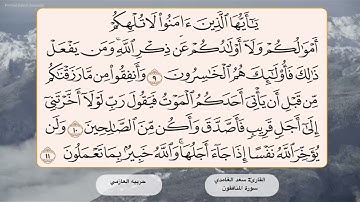 يَٰٓأَيُّهَا ٱلَّذِينَ ءَامَنُوا۟ لَا تُلْهِكُمْ
أَمْوَٰلُكُمْ وَلَآ أَوْلَٰدُكُمْ عَن ذِكْرِ ٱللَّهِ ۚ وَمَن يَفْعَلْ
ذَٰلِكَ فَأُو۟لَٰٓئِكَ هُمُ ٱلْخَٰسِرُونَ ٩ وَأَنفِقُوا۟ مِن مَّا رَزَقْنَٰكُم
مِّن قَبْلِ أَن يَأْتِىَ أَحَدَكُمُ ٱلْمَوْتُ فَيَقُولَ رَبِّ لَوْلَآ أَخَّرْتَنِىٓ
إِلَىٰٓ أَجَلٍ قَرِيبٍ فَأَصَّدَّقَ وَأَكُن مِّنَ ٱلصَّٰلِحِينَ ١٠ وَلَن
يُؤَخِّرَ ٱللَّهُ نَفْسًا إِذَا جَآءَ أَجَلُهَا ۚ وَٱللَّهُ خَبِيرٌۢ بِمَا تَعْمَلُونَ ١١
القارئ سعد الغامدي
سورة المنافقون
حربيه العازمي